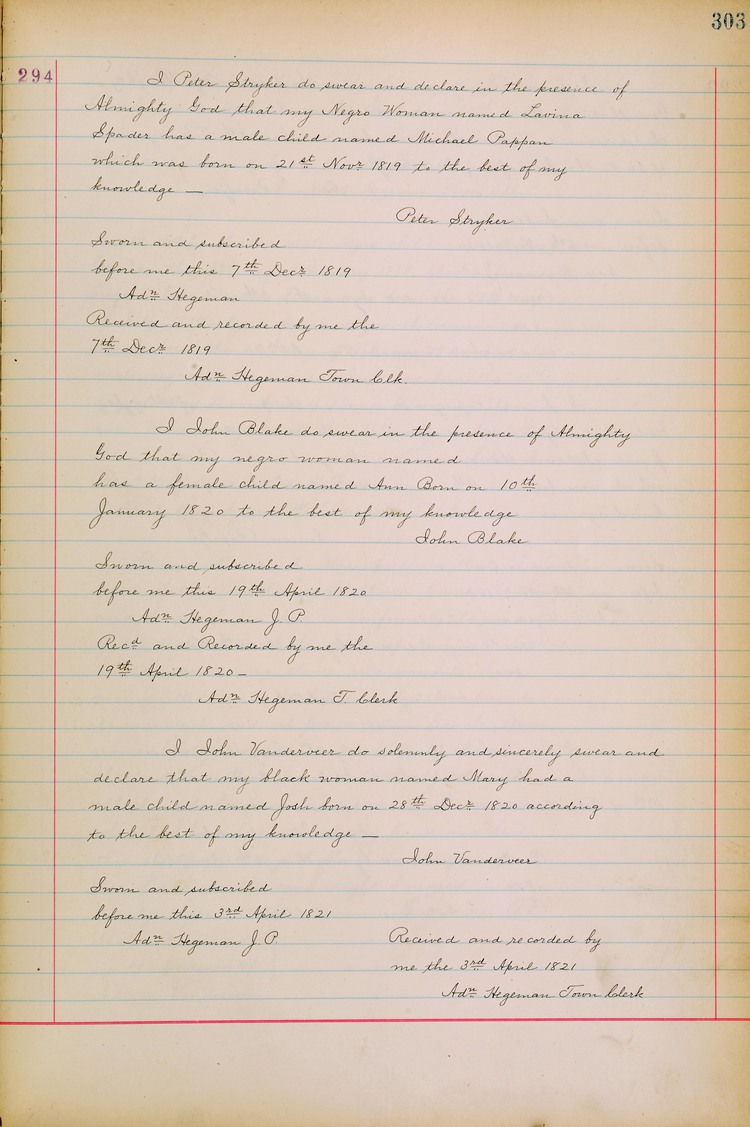 303
294
I Peter Stryker do swear and declare in the presence of
Almighty God that my Negro Woman named Lavina
Spader has a male child named Michael Pappan
which was born on 21st Novr 1819 to the best of my
knowledge —
Peter Stryker
Sworn and subscribed
before me this 7th Decr 1819
Adn Hegeman
Received and recorded by me the
7th Decr 1819
Adn Hegeman Town Clk.
I John Blake do swear in the presence of Almighty
God that my negro woman named
has a female child named Ann Born on 10th
January 1820 to the best of my knowledge
John Blake
Sworn and subscribed
before me this 19th April 1820
Adn Hegeman J. P.
Recd and Recorded by me the
19th April 1820 –
Adn Hegeman T. Clerk
I John Vanderveer do solemnly and sincerely swear and
declare that my black woman named Mary had a
male child named Josh born on 28th Decr 1820 according
to the best of my knowledge —
John Vanderveer
Sworn and subscribed
before me this 3rd April 1821
Adn Hegeman J. P.
Received and recorded by
me the 3rd April 1821
Adn Hegeman Town Clerk